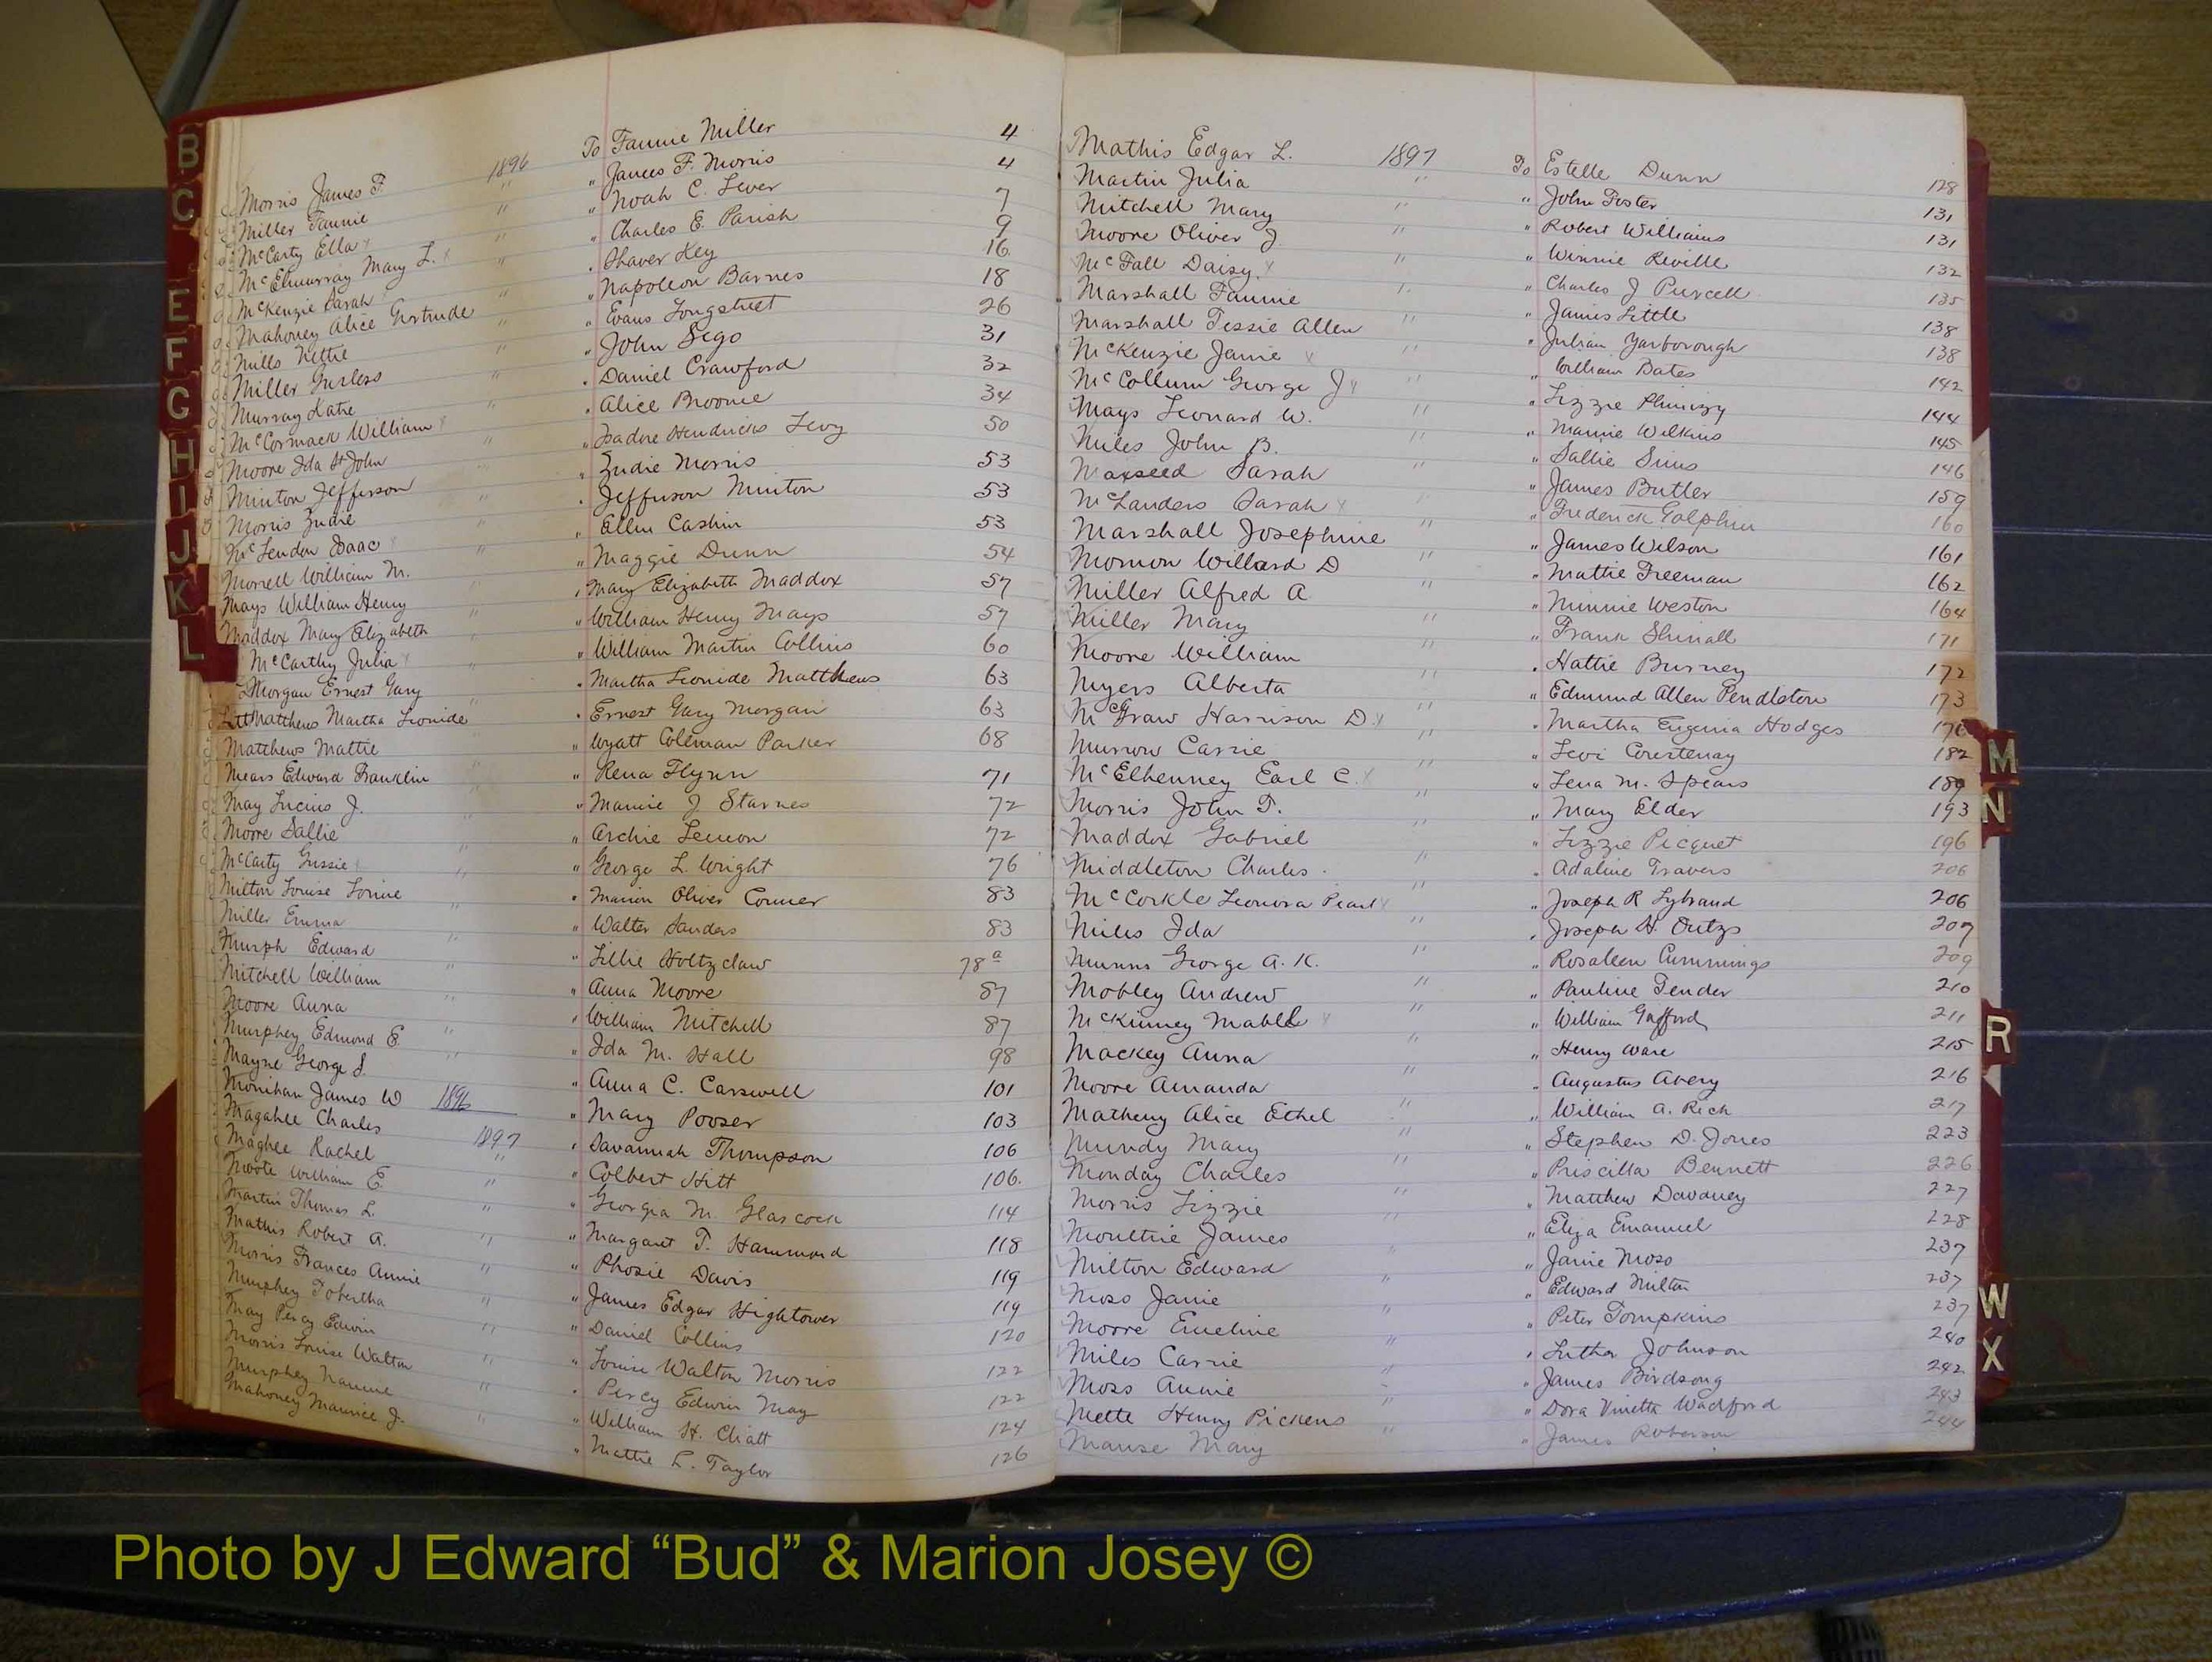 Morris James F. 1896 To Fannie Miller 4
Miller Fannie " " James F. Morris 4
McCarty Ella " " Noah C. Lever 7
McElmurray Mary L. " " Charles E. Parish 9
McKenzie Sarah " " Shaver Key 16
Mahoney Alice Gertrude " " Napoleon Barnes 18
Mills Nettie " " Evans Longstreet 26
Miller " " John Sego 31
Murray Katie " " Daniel Crawford 32
McCormack William " " Alice Broome 34
Moore Ida St John " " Isadore Hendricks Levy 50
Minton Jefferson " " Zudie Morris 53
Morris Zudie " " Jefferson Minton 53
McLendon Isaac " " Ellen Cashin 53
Morrell William M. " " Maggie Dunn 54
Mays William Henry " " Mary Elizabeth Maddox 57
Maddox Mary Elizabeth " " William Henry Mays 57
McCarthy Julia " " William Martin Collins 60
Morgan Ernest Gary " " Martha Leonide Matthews 63
Matthews Martha Leonide " " Ernest Gary Morgan 63
Matthews Mattie " " Wyatt Coleman Parker 68
Mears Edward Franklin " " Rena Flynn 71
May Lucius J. " " Mamie J Starnes 72
Moore Sallie " " Archie Lemon 72
McCarty Gussie " " George L. Wright 76
Milton Louise " " Marion Oliver Conner 83
Miller Emma " " Walter Sanders 83
Murph Edward " " Lillie Holtzclaw 78a
Mitchell William " " Anna Moore 87
Moore Anna " " William Mitchell 87
Murphey Edmond E. " " Ida M. Hall 98
Mayne George S. " " Anna C. Carswell 101
Monihan James W 1896 " Mary Pooser 103
Magahee Charles 1897 " Savannah Thompson 106
Maghee Rachel " " Colbert Hitt 106
Moote William E. " " Georgia M. Glascock 114
Martin Thomas L. " " Margaret T. Hammond 118
Mathis Robert A. " " Phosie Davis 119
Morris Frances Annie " " James Edgar Hightower 119
Murphey Tobertha " " Daniel Collins 120
May Percy Edwin " " Louise Walton Morris 122
Morris Louise Walton " " Percy Edwin May 122
Murphey Nannie " " William H. Chatt 124
Mahoney Maurice J. " " Mattie L. Taylor 126
Mathis Edgar L. 1897 To Estelle Dunn 128
Martin Julia " " John Foster 131
Mitchell Mary " " Robert Williams 131
Moore Oliver J. " " Winnie Reville 132
McFall Daisy " " Charles J Purcell 135
Marshall Fannie " " James Little 138
Marshall Tessie Allen " " Julian Yarborough 138
McKenzie Janie " " William Bates 142
McCollum George J " " Lizzie Phinizy 144
Mays Leonard W. " " Mamie Wilkins 145
Miles John B. " " Sallie Sims 146
Maxseed Sarah " " James Butler 159
McLanders Sarah " " Frederick Galphin 160
Marshall Josephine " " James Wilson 161
Momon Willard D " " Mattie Freeman 162
Miller Alfred A " " Minnie Weston 164
Miller Mary " " Frank Shinall 171
Moore William " " Hattie Burney 172
Myers Alberta " " Edmund Allen Pendleton 173
McGraw Harrison D. " " Martha Eugenia Hodges 176
Murrow Carrie " " Levi Courtenay 182
McElhenney Earl C. " " Lena M. Spears 189
Morris John T. " " Mary Elder 193
Maddox Gabriel " " Lizzie Picquet 196
Middleton Charles " " Adaline Travers 206
McCorkle Leonora Pearl " " Joseph R Lybrand 206
Miles Ida " " Joseph H. Outzs 207
Munns George A. K. " " Rosaleen Cummings 209
Mobley Andrew " " Pauline Tender 210
McKinney Mable " " William Gafford 211
Mackey Anna " " Henry Ware 215
Moore Amanda " " Augustus Avery 216
Matheny Alice Ethel " " William A. Rich 217
Mundy Mary " " Stephen D. Jones 223
Monday Charles " " Priscilla Bennett 226
Morris Lizzie " " Matthew Davaney 227
Moultrie James " " Eliza Emanuel 228
Milton Edward " " Janie Moss 237
Moss Janie " " Edward Milton 237
Moore Emeline " " Peter Tompkins 237
Miles Carrie " " Luther Johnson 240
Moss Annie " " James Birdsong 242
Mette Henry Pickens " " Dora Vinetta Wadford 243
Mause Mary " " James Roberson 244
B
C
E
F
G
H
I
J
K
L
M
N
R
W
X
Photo by J Edward “Bud” & Marion Josey ©